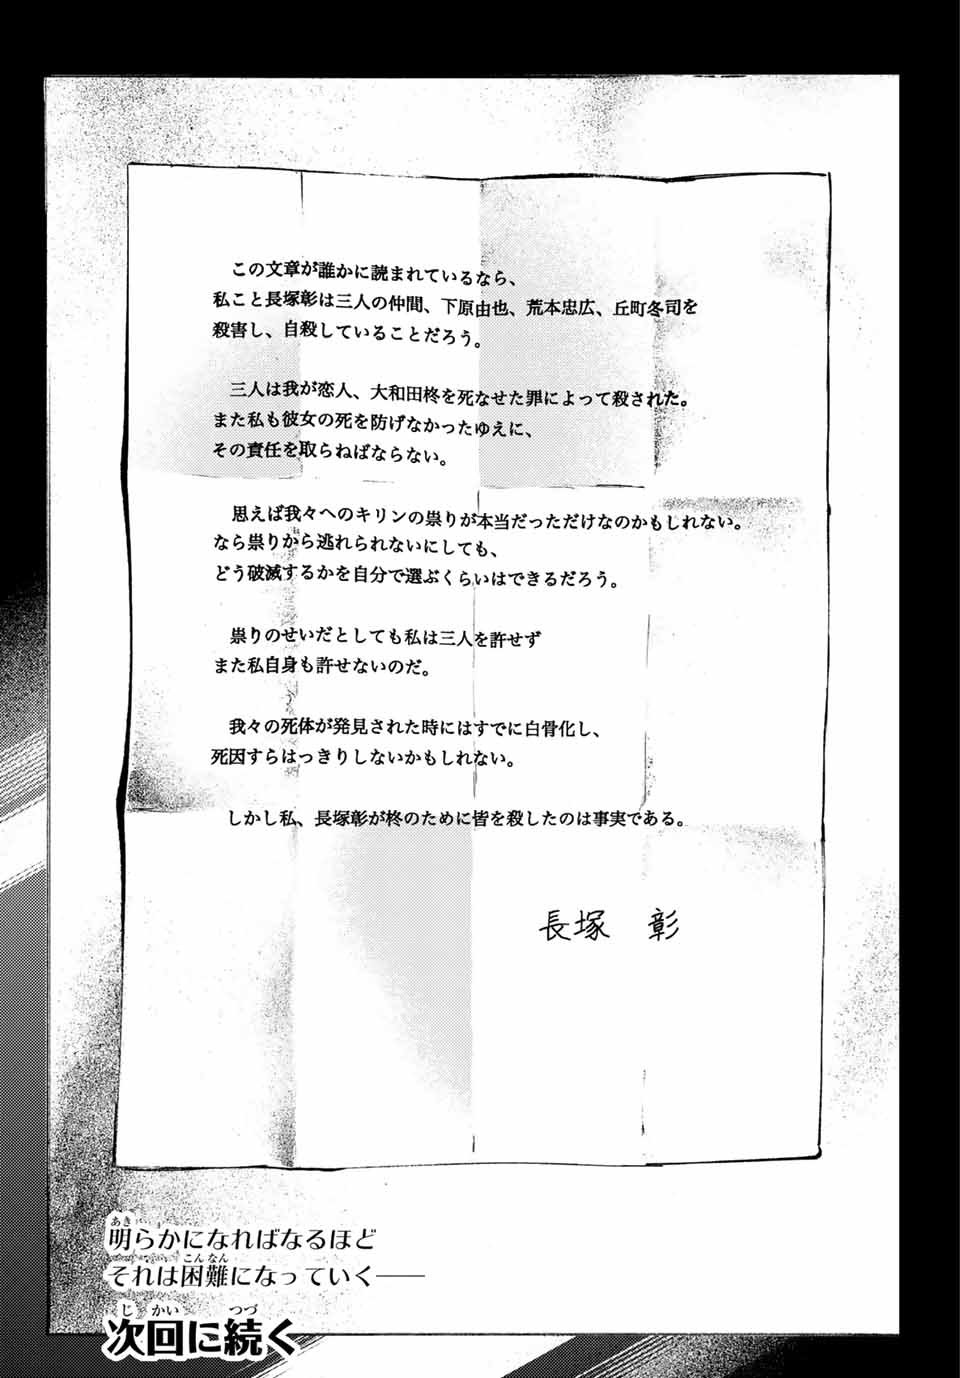 この文章が誰かに読まれているなら、
私こと長塚彰は三人の仲間、下原由也、荒本忠広、丘町冬司を
殺害し、自殺していることだろう。
三人は我が恋人、大和田柊を死なせた罪によって殺された。
また私も彼女の死を防げなかったゆえに、
その責任を取らねばならない。
思えば我々へのキリンの祟りが本当だっただけなのかもしれない。
なら祟りから逃れられないにしても、
どう破滅するかを自分で選ぶくらいはできるだろう。
祟りのせいだとしても私は三人を許せず
また私自身も許せないのだ。
我々の死体が発見された時にはすでに白骨化し、
死因すらはっきりしないかもしれない。
しかし私、長塚彰が柊のために皆を殺したのは事実である。
長塚 彰
明らかになればなるほど
それは困難になっていく——
次回に続く